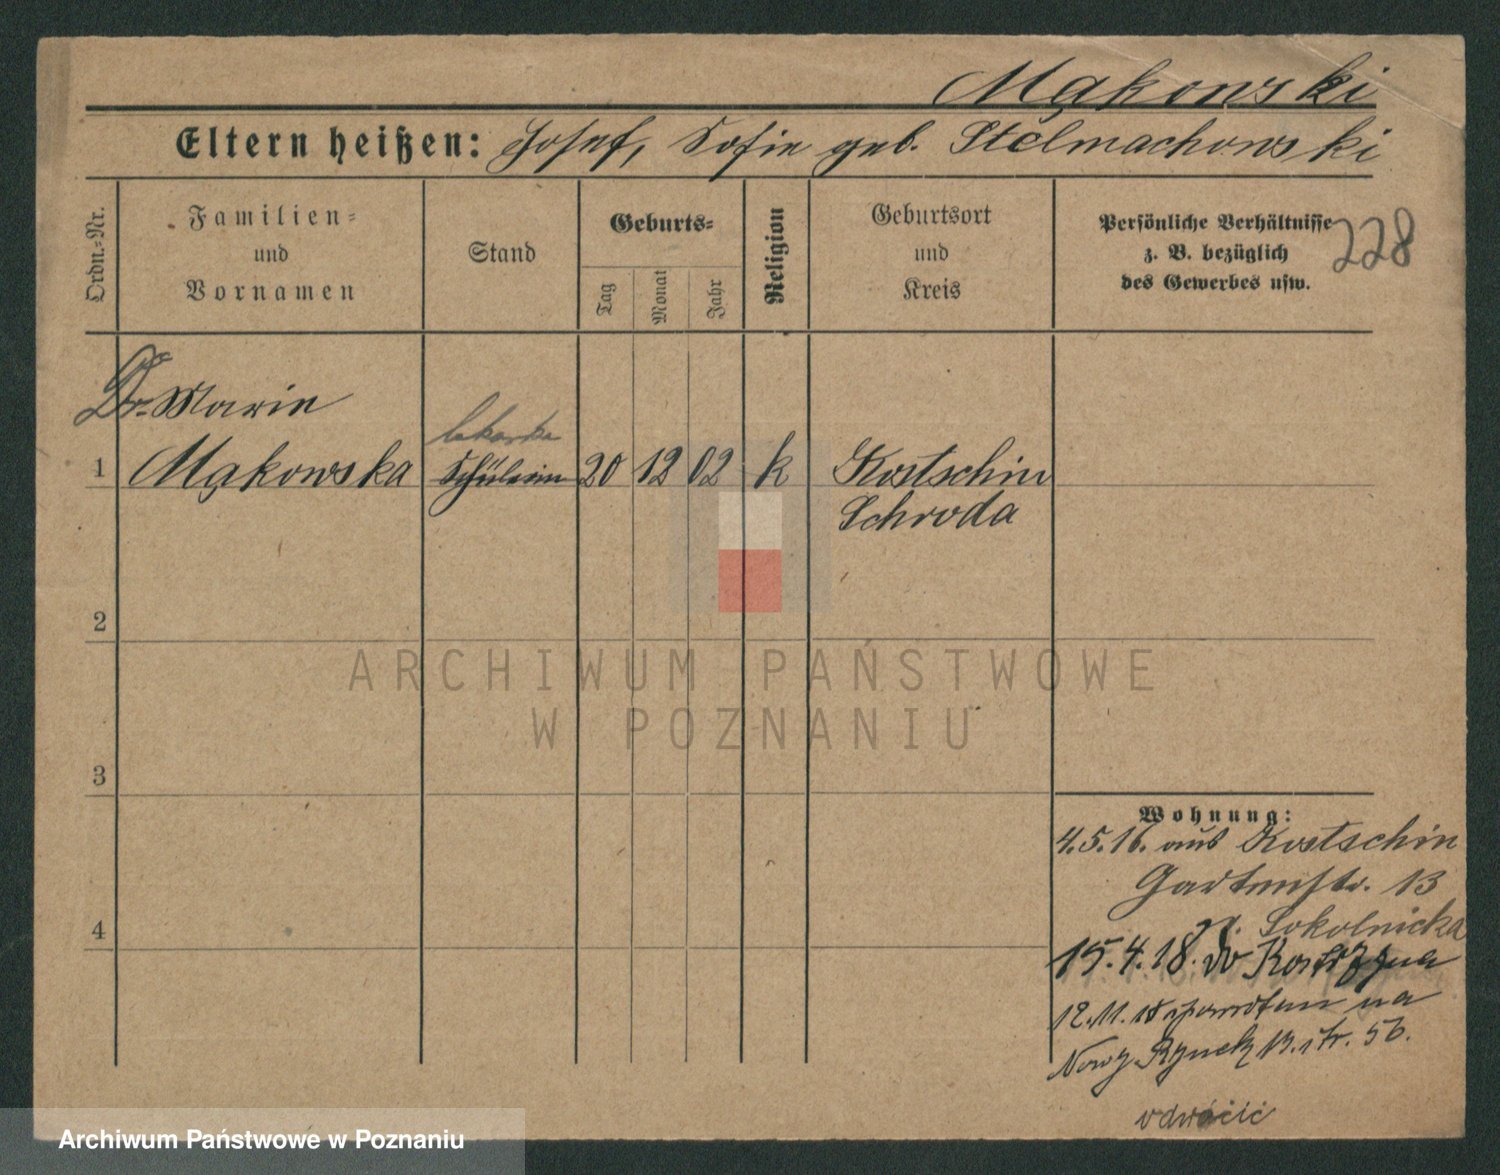 Mąkowski
Eltern heißen: Josef, Sofie geb. Stelmachowski
Ordn.=Nr.
Familien=
und
Vornamen
Stand
Geburts=
Tag
Monat
Jahr
Religion
Geburtsort
und
Kreis
Persönliche Verhältnisse
z. B. bezüglich
des Gewerbes usw.
228
Dr. Marie
lekarka
1 Mąkowska Schülerin 20 12 02 k Kostschin
Schroda
2
ARCHIWUM PAŃSTWOWE
W POZNANIU
3
Wohnung:
4.5.16. aus Kostschin
Gartenstr. 13
Sokolnicka
4
15.4.18. do
12.11.18 na
Nowy Rynek 13. str. 56.
odwócić
Archiwum Państwowe w Poznaniu